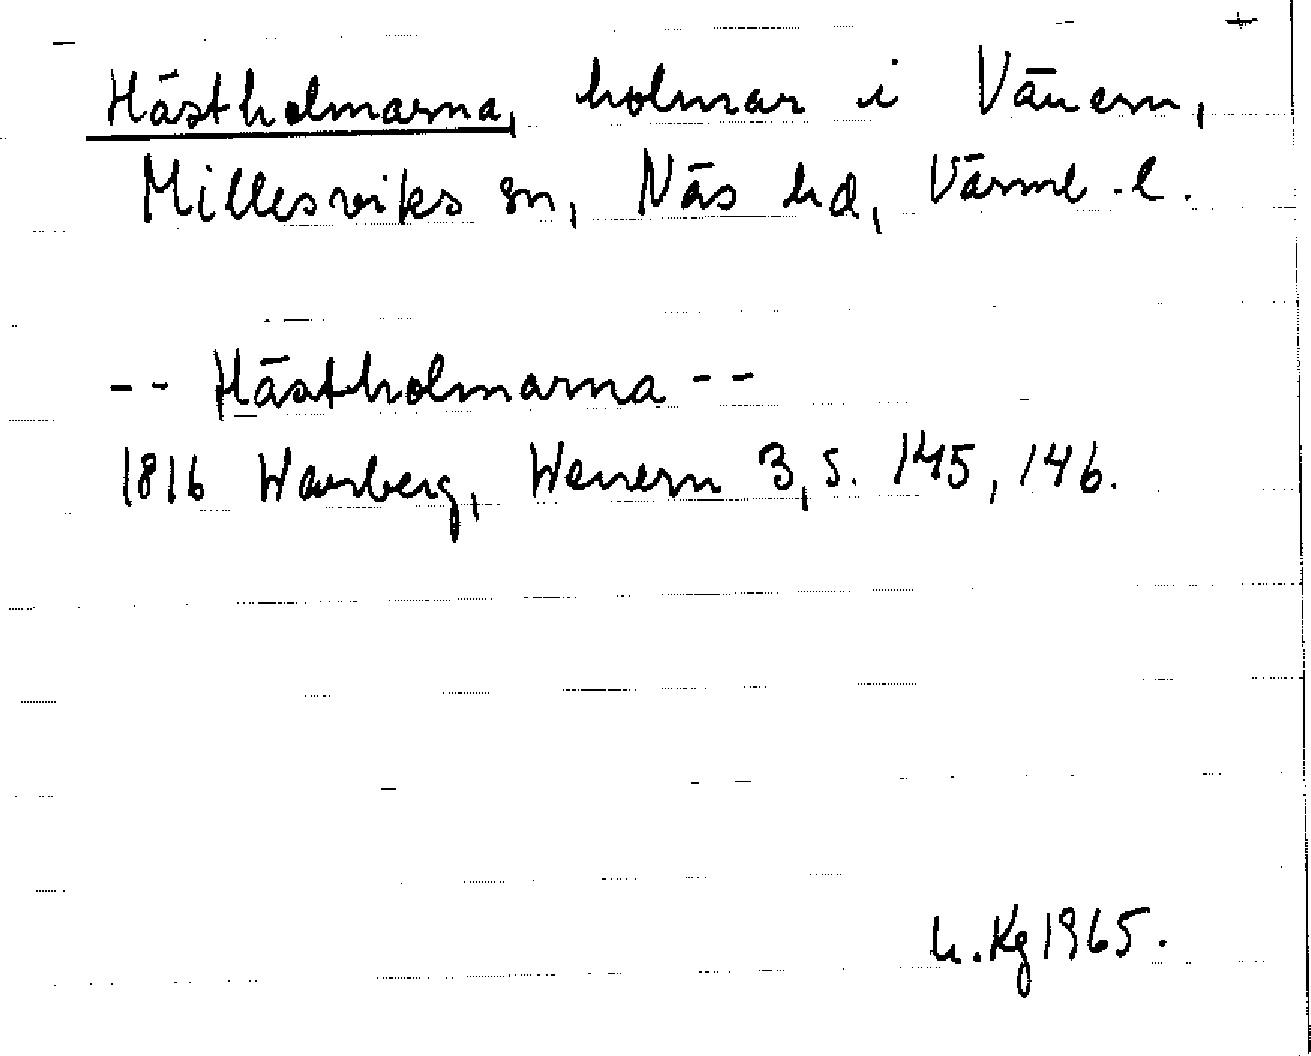 Hästholmarna, holmar i Vänern,
Millesviks sn, Näs hd, Värml. l.
-- Hästholmarna --
1816 Warberg, Wenern 3, s. 145, 146.
h. Kg 1965.